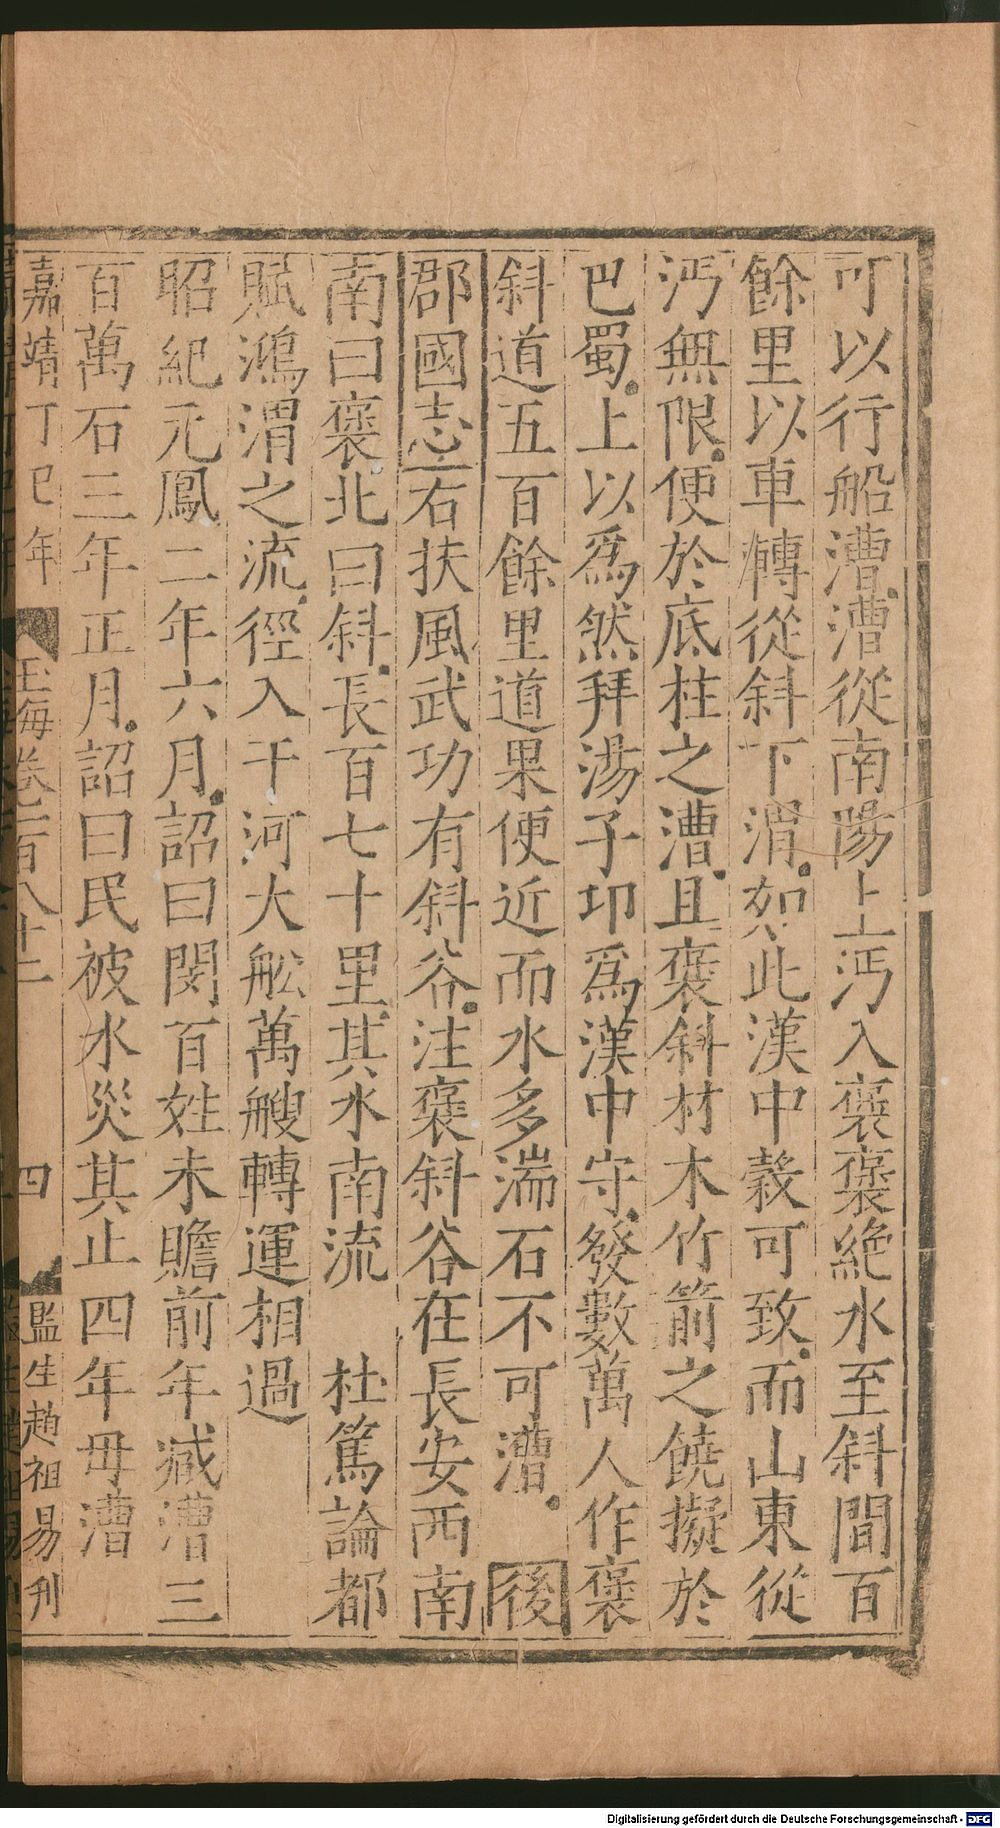 可以行船漕漕從南陽上沔入褒褒絶水至斜間百
餘里以車轉從斜下渭如此漢中榖可致而山東從
沔無限便於底柱之漕且褒斜材木竹箭之饒擬於
巴蜀上以爲然拜湯子卭爲漢中守發數萬人作褒
斜道五百餘里道果便近而水多湍石不可漕 後
郡國志右扶風武功有斜谷注褒斜谷在長安西南
南曰褒北曰斜長百七十里其水南流 杜篤論都
賦鴻渭之流徑入于河大舩萬艘轉運相過
昭紀元鳳二年六月詔曰閔百姓未贍前年減漕三
百萬石三年正月詔曰民被水災其止四年毋漕
嘉靖丁巳年 玉海卷一百八十二 四 監生趙祖易刋
Digitalisierung gefördert durch die Deutsche Forschungsgemeinschaft - DFG